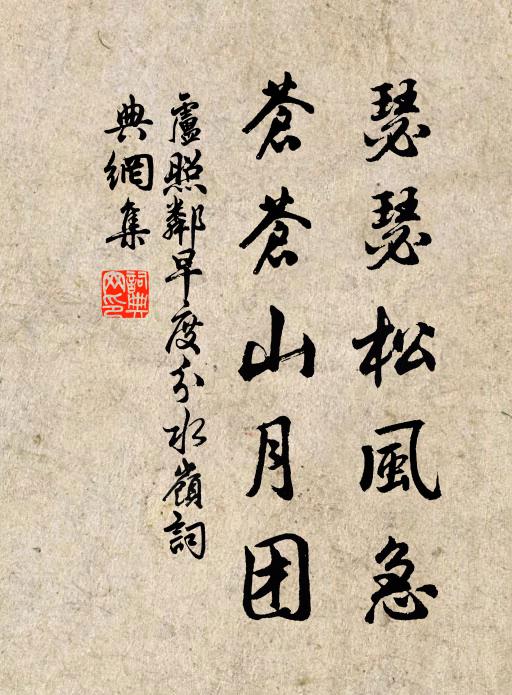 瑟瑟松風急
蒼蒼山月团
盧照鄰早度分水嶺詞
典網集
詞典网印